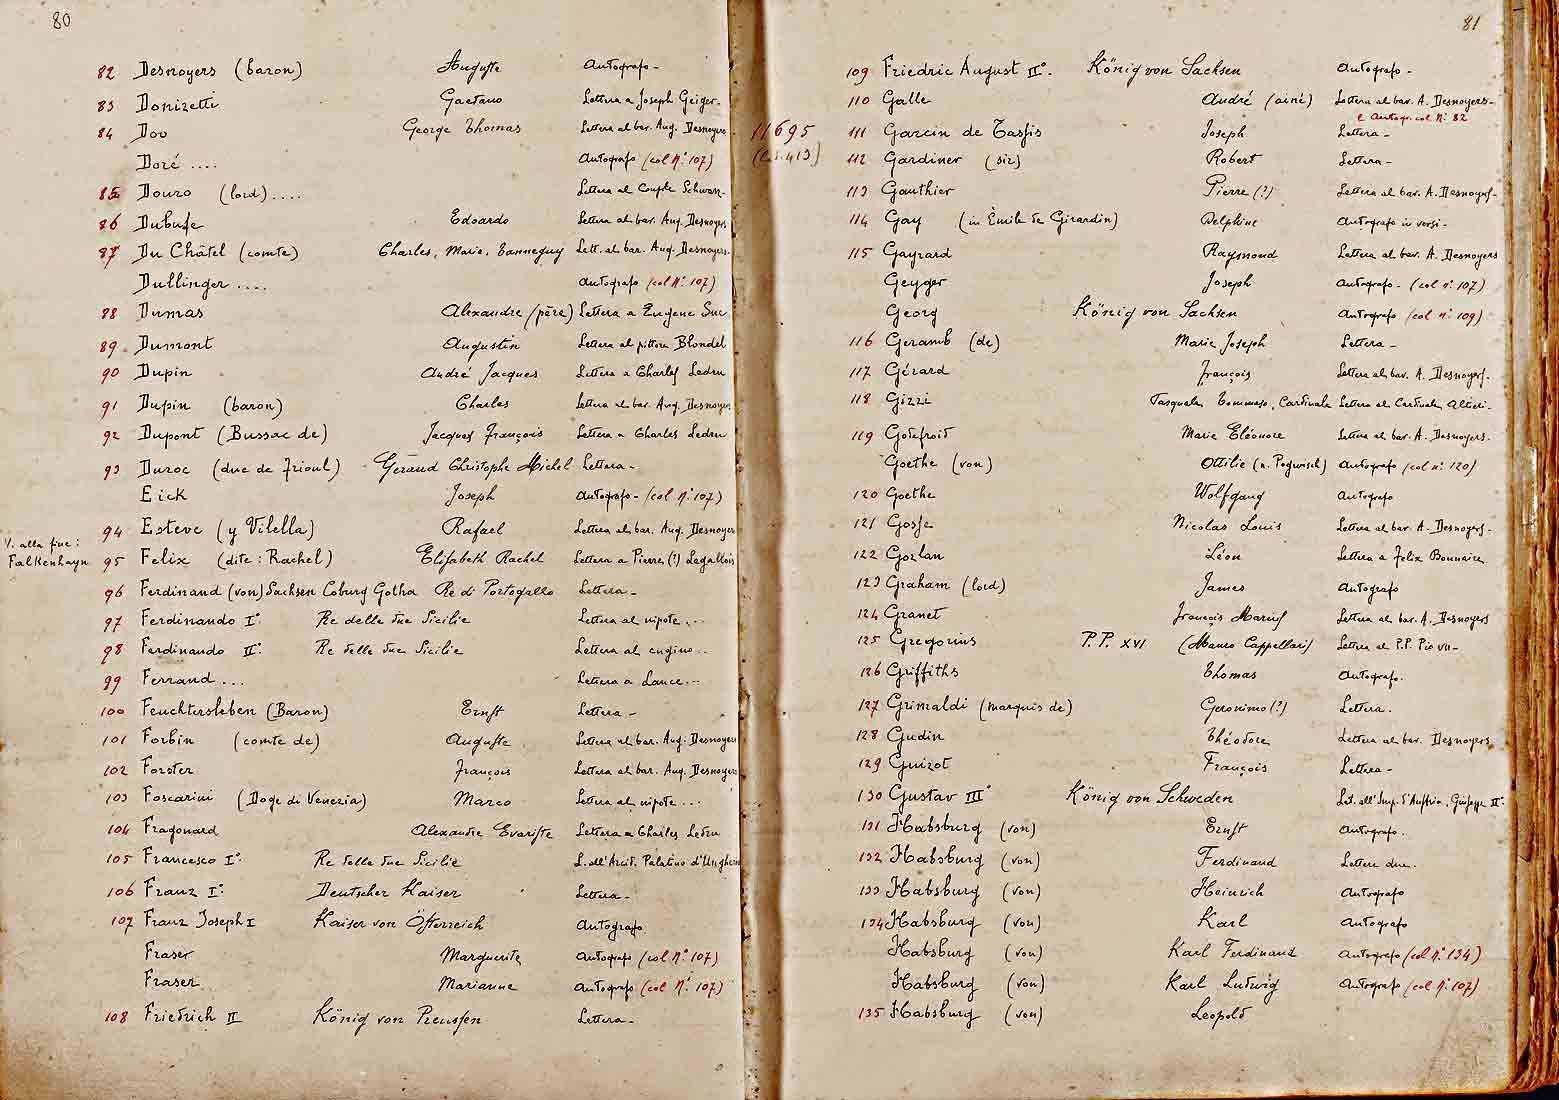 80
82 Desnoyers (baron) Auguste Autografo -
83 Donizetti Gaetano Lettera a Joseph Geiger -
84 Dov George Thomas Lettera al bar. Aug. Desnoyers
Doré .... Autografo (col N.° 107)
85 Douro (lord) .... Lettera al
86 Dubufe Edoardo Lettera al bar. Aug. Desnoyers
87 Du Châtel (comte) Charles, Marie, Tanneguy Lett. al bar. Aug. Desnoyers.
Dullinger .... Autografo (col N.° 107)
88 Dumas Alexandre (père) Lettera a Eugene Sue
89 Dumont Augustin Lettera al pittore Blondel
90 Dupin André Jacques Lettera a Charles Ledru
91 Dupin (baron) Charles Lettera al bar. Aug. Desnoyers
92 Dupont (Bussac de) Jacques François Lettera a Charles Ledru
93 Duroc (duc de Frioul) Géraud Christophe Michel Lettera -
Eick Joseph Autografo - (col N.° 107)
94 Esteve (y Vilella) Rafael Lettera al bar. Aug. Desnoyers
V. alla fine:
Falkenhayn
95 Felix (dite: Rachel) Elisabeth Rachel Lettera a Pierre (?) Legallois
96 Ferdinand (von) Sachsen Coburg Gotha Re di Portogallo Lettera -
97 Ferdinando I° Re delle due Sicilie Lettera al nipote ...
98 Ferdinando II° Re delle due Sicilie Lettera al cugino ..
99 Ferrand ... Lettera a Lance ...
100 Feuchtersleben (Baron) Ernst Lettera -
101 Forbin (comte de) Auguste Lettera al bar. Aug. Desnoyers
102 Forster François Lettera al bar. Aug. Desnoyers
103 Foscarini (Doge di Venezia) Marco Lettera al nipote ...
104 Fragonard Alexandre Evariste Lettera a Charles Ledru
105 Francesco I° Re delle due Sicilie L. all'Arcid. Palatino d'Ungheria
106 Franz I° Deutscher Kaiser Lettera -
107 Franz Joseph I Kaiser von Österreich Autografo
Fraser Marguerite Autografo (col N.° 107)
Fraser Marianne Autografo (col N.° 107)
108 Friedrich II König von Preussen Lettera -
11695
81
109 Friedric August II°. König von Sachsen Autografo -
110 Galle André (ainé) Lettera al bar. A. Desnoyers -
e Autogr. col N.° 82
111 Garcin de Tassis Joseph Lettera -
112 Gardiner (sir) Robert Lettera -
113 Gauthier Pierre (?) Lettera al bar. A. Desnoyers -
114 Gay (in Émile de Girardin) Delphine Autografo in versi -
115 Gayrard Raymond Lettera al bar. A. Desnoyers
Geyger Joseph Autografo - (col n.° 107)
Georg König von Sachsen Autografo (col n.° 109)
116 Geramb (de) Marie Joseph Lettera -
117 Gérard François Lettera al bar. A. Desnoyers -
118 Gizzi Pasquale Tommaso, Cardinale Lettera al Cardinale Altieri -
119 Godefroid Marie Eléonore Lettera al bar. A. Desnoyers -
Goethe (von) Ottilie (n. Pogwisch) Autografo (col n.° 120)
120 Goethe Wolfgang Autografo
121 Gosse Nicolas Louis Lettera al bar. A. Desnoyers -
122 Gozlan Léon Lettera a Felix Bonnaire
123 Graham (lord) James Autografo
124 Granet François Marius Lettera al bar. A. Desnoyers
125 Gregorius P.P. XVI (Mauro Cappellari) Lettera al P.P. Pio VII -
126 Griffiths Thomas Autografo.
127 Grimaldi (marquis de) Geronimo (?) Lettera.
128 Gudin Théodore Lettera al bar. Desnoyers
129 Guizot François Lettera -
130 Gustav III° König von Schweden Let. all'Imp. d'Austria, Giuseppe II°
131 Habsburg (von) Ernst Autografo.
132 Habsburg (von) Ferdinand Lettere due.
133 Habsburg (von) Heinrich Autografo
134 Habsburg (von) Karl Autografo
Habsburg (von) Karl Ferdinand Autografo (col N.° 134)
Habsburg (von) Karl Ludwig Autografo (col N.° 107)
135 Habsburg (von) Leopold